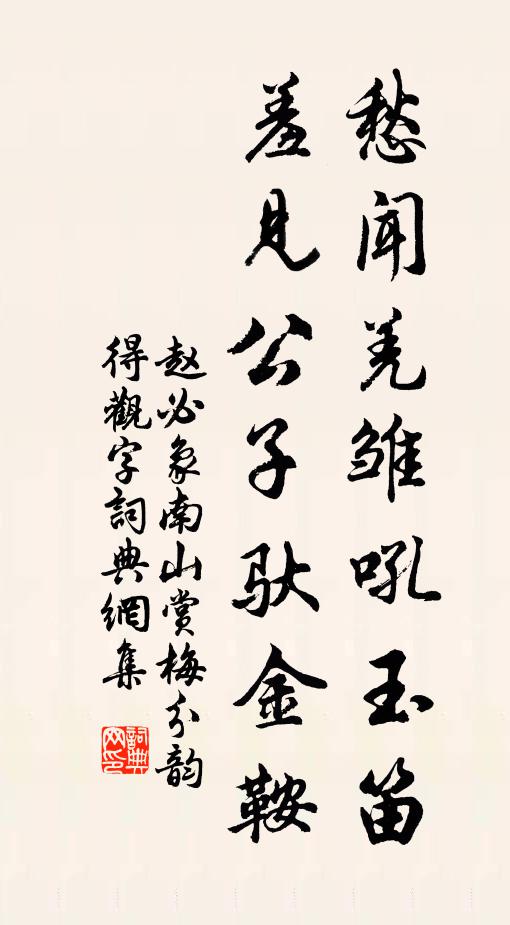 愁闻羌雏吼玉笛
羞见公子驮金鞍
赵必象南山赏梅分韵
得觀字詞典網集
詞典网印